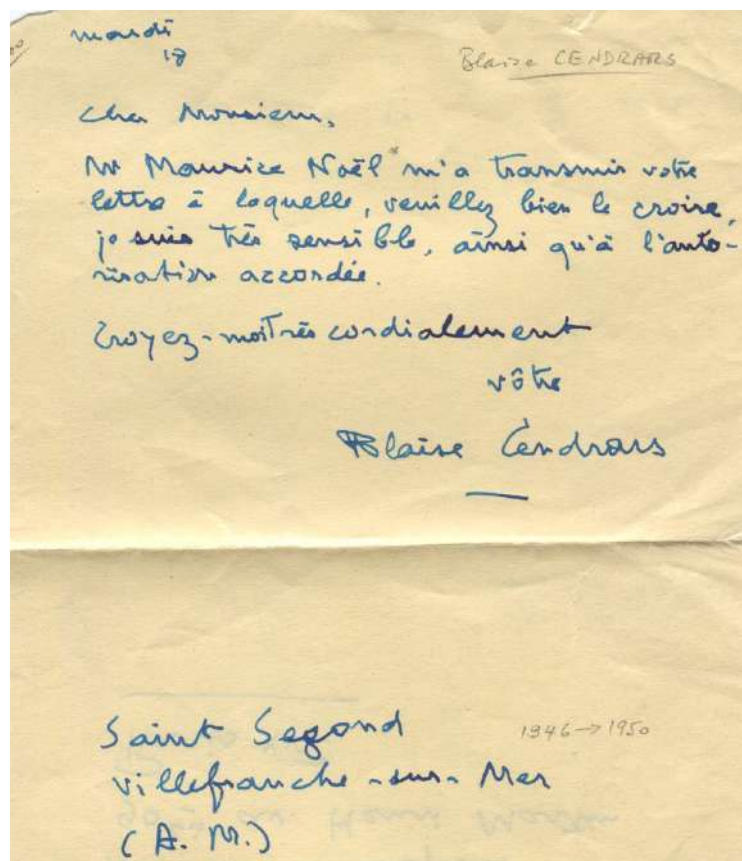 mardi
18
Blaise CENDRARS
Cher Monsieur,
Mr Maurice Noël m'a transmis votre
lettre à laquelle, veuillez bien le croire,
je suis très sensible, ainsi qu'à l'auto-
risation accordée.
Croyez-moi très cordialement
vôtre
Blaise Cendrars
Saint Segond
1946→1950
Villefranche-sur-Mer
(A.M.)